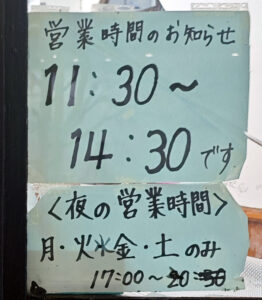 営業時間のお知らせ
11:30〜
14:30です
〈夜の営業時間〉
月・火水金・土のみ
17:00〜20:50